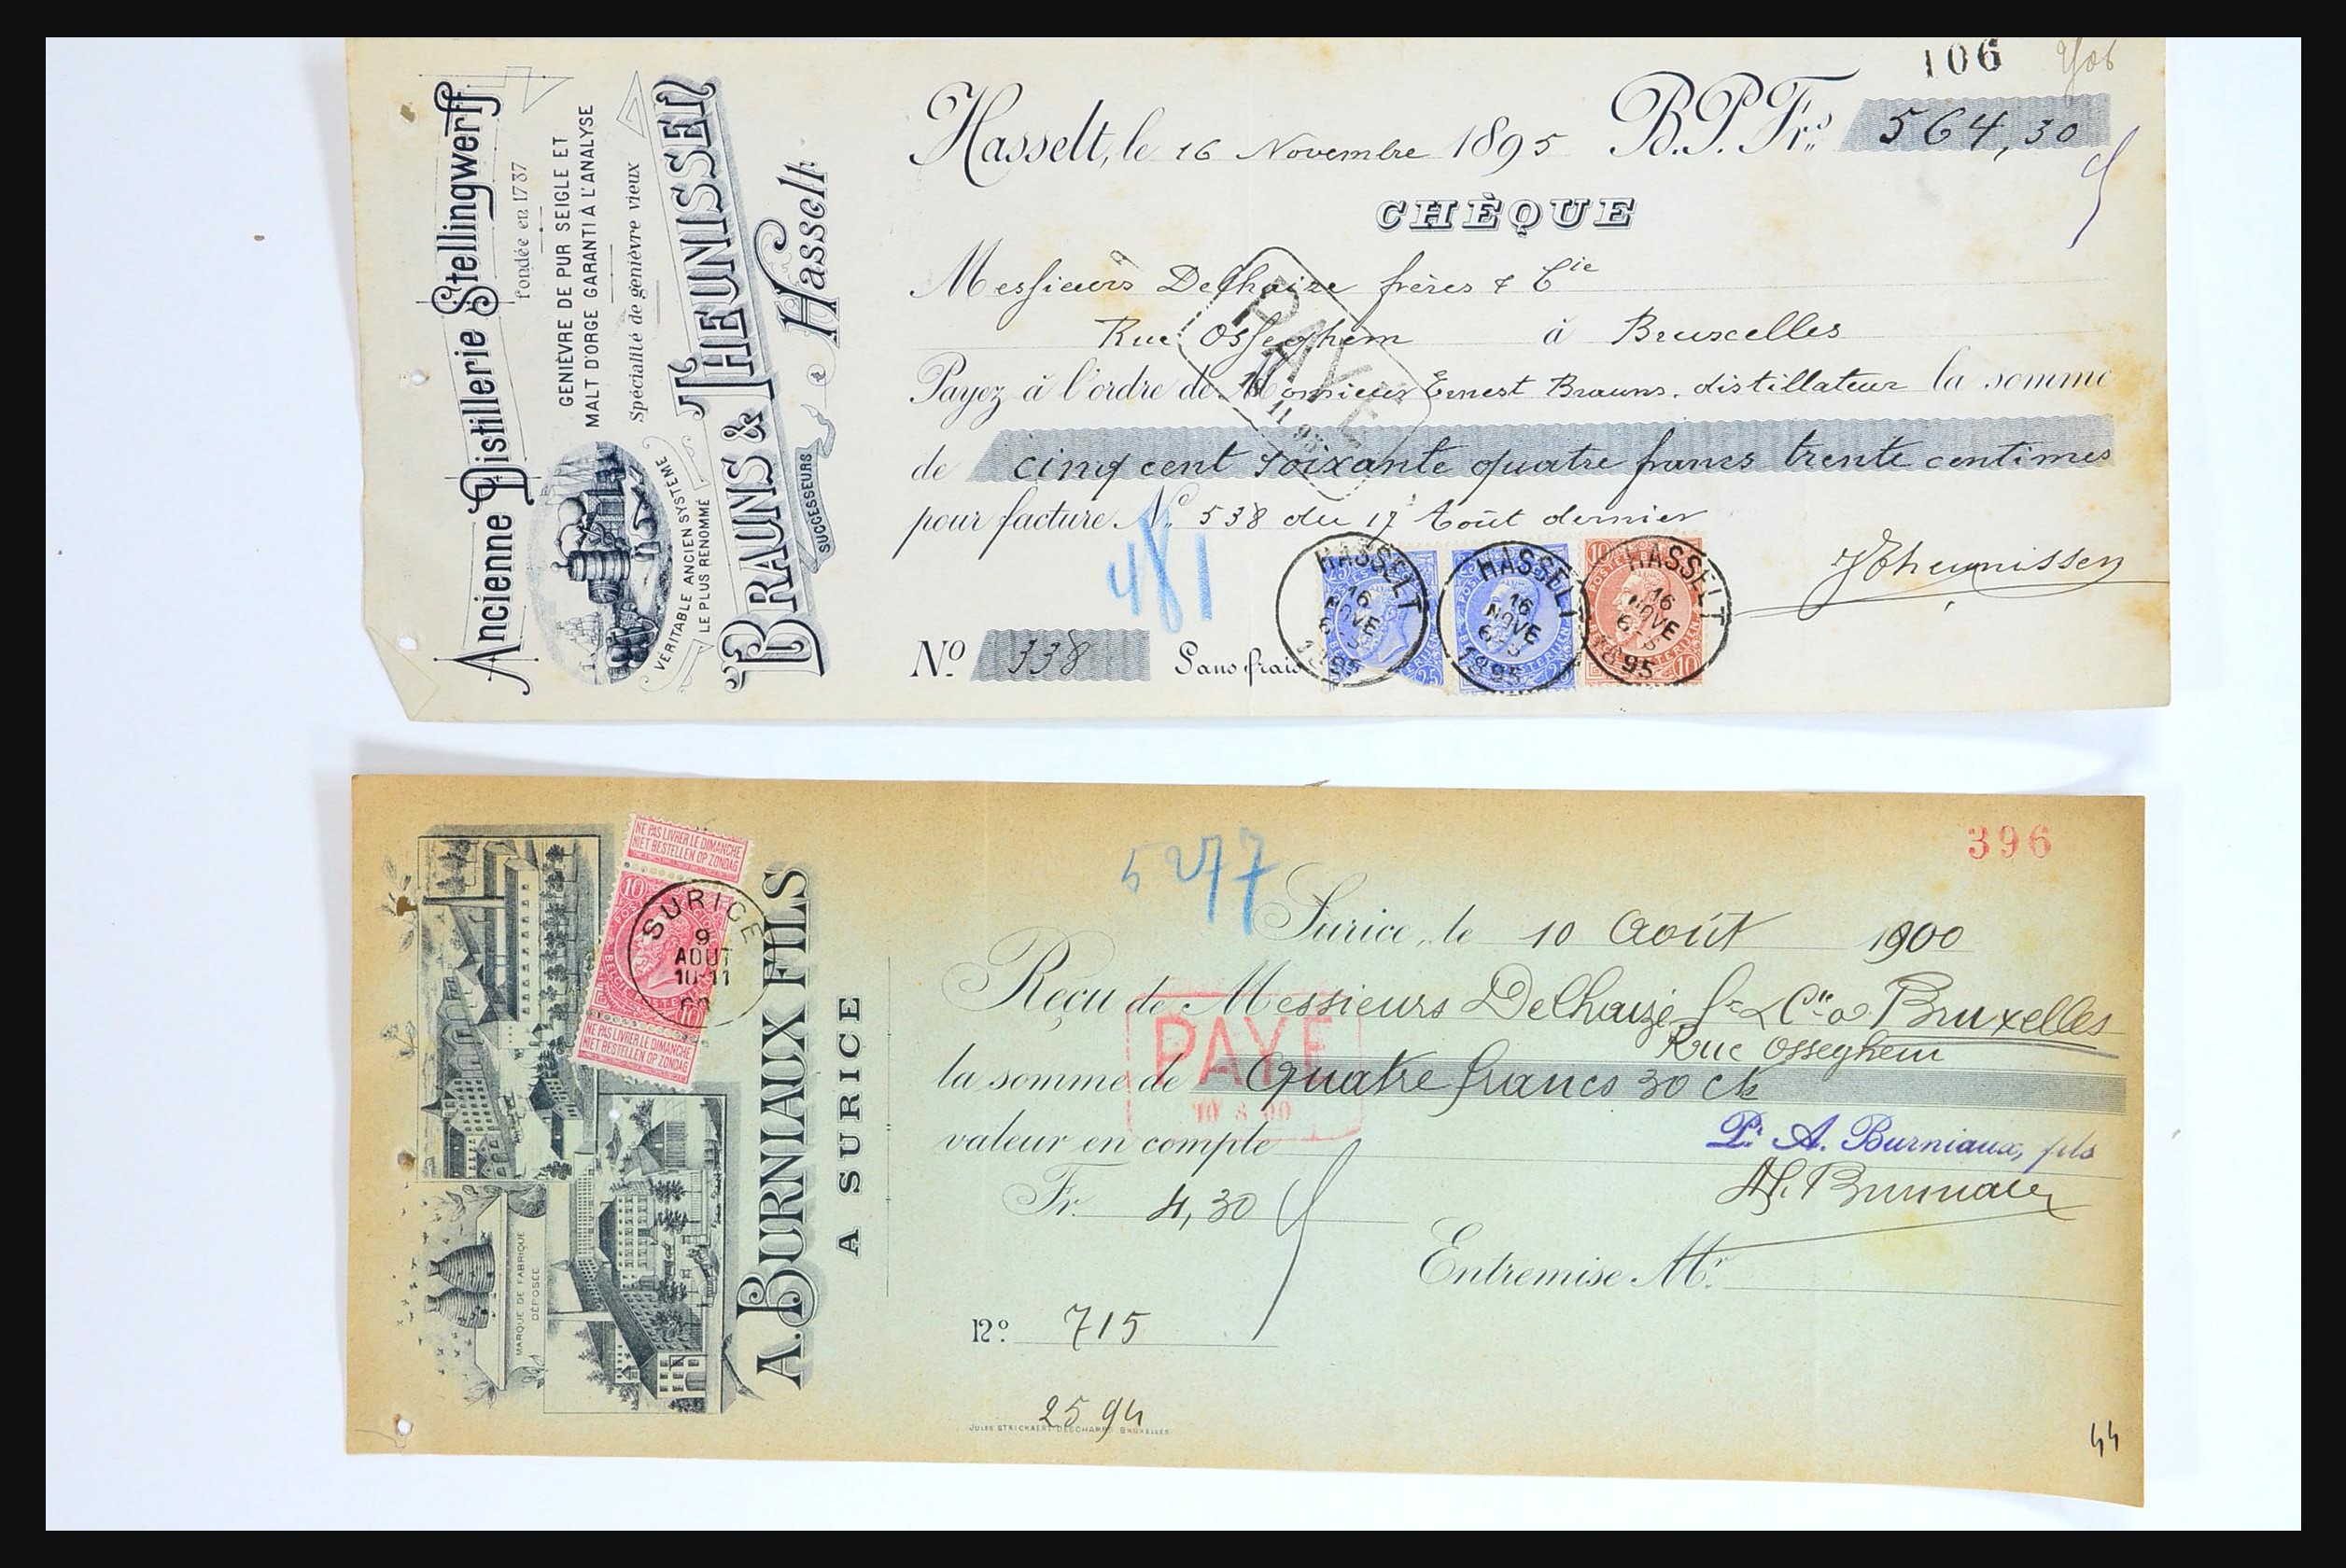 106
Ancienne Distillerie Stellingwerff
fondée en 1737
GENIÈVRE DE PUR SEIGLE ET
MALT D'ORGE GARANTI À L'ANALYSE
Spécialité de genièvre vieux
VÉRITABLE ANCIEN SYSTÈME
LE PLUS RENOMMÉ
BRAUNS & J. THEUNISSEN
SUCCESSEURS
Hasselt
Hasselt, le 16 Novembre 1895 B.P. Frs 564,30
CHÈQUE
Messieurs Delhaize frères & Cie
Rue Osseghem à Bruxcelles
Payez à l'ordre de Monsieur Ernest Brauns, distillateur la somme
de cinq cent soixante quatre francs trente centimes
pour facture No 538 du 17 Août dernier
PAYÉ
11 95
481
JTheunissen
No 338 Sans frais
HASSELT
16
NOVE
1895
HASSELT
16
NOVE
1895
HASSELT
16
NOVE
1895
396
5277
NE PAS LIVRER LE DIMANCHE
NIET BESTELLEN OP ZONDAG
SURICE
9
AOUT
10-11
NE PAS LIVRER LE DIMANCHE
NIET BESTELLEN OP ZONDAG
MARQUE DE FABRIQUE
DÉPOSÉE
A. BURNIAUX FILS
A SURICE
Surice, le 10 Août 1900
Reçu de Messieurs Delhaize f.es & Cie à Bruxelles
Rue Osseghem
la somme de Quatre francs 30 cts
PAYÉ
10 8 00
valeur en compte
Pr A. Burniaux, fils
Fr. 4,30
Entremise Mr
No 715
2594
JULES STRICKAERT-DESCHAMPS BRUXELLES
44